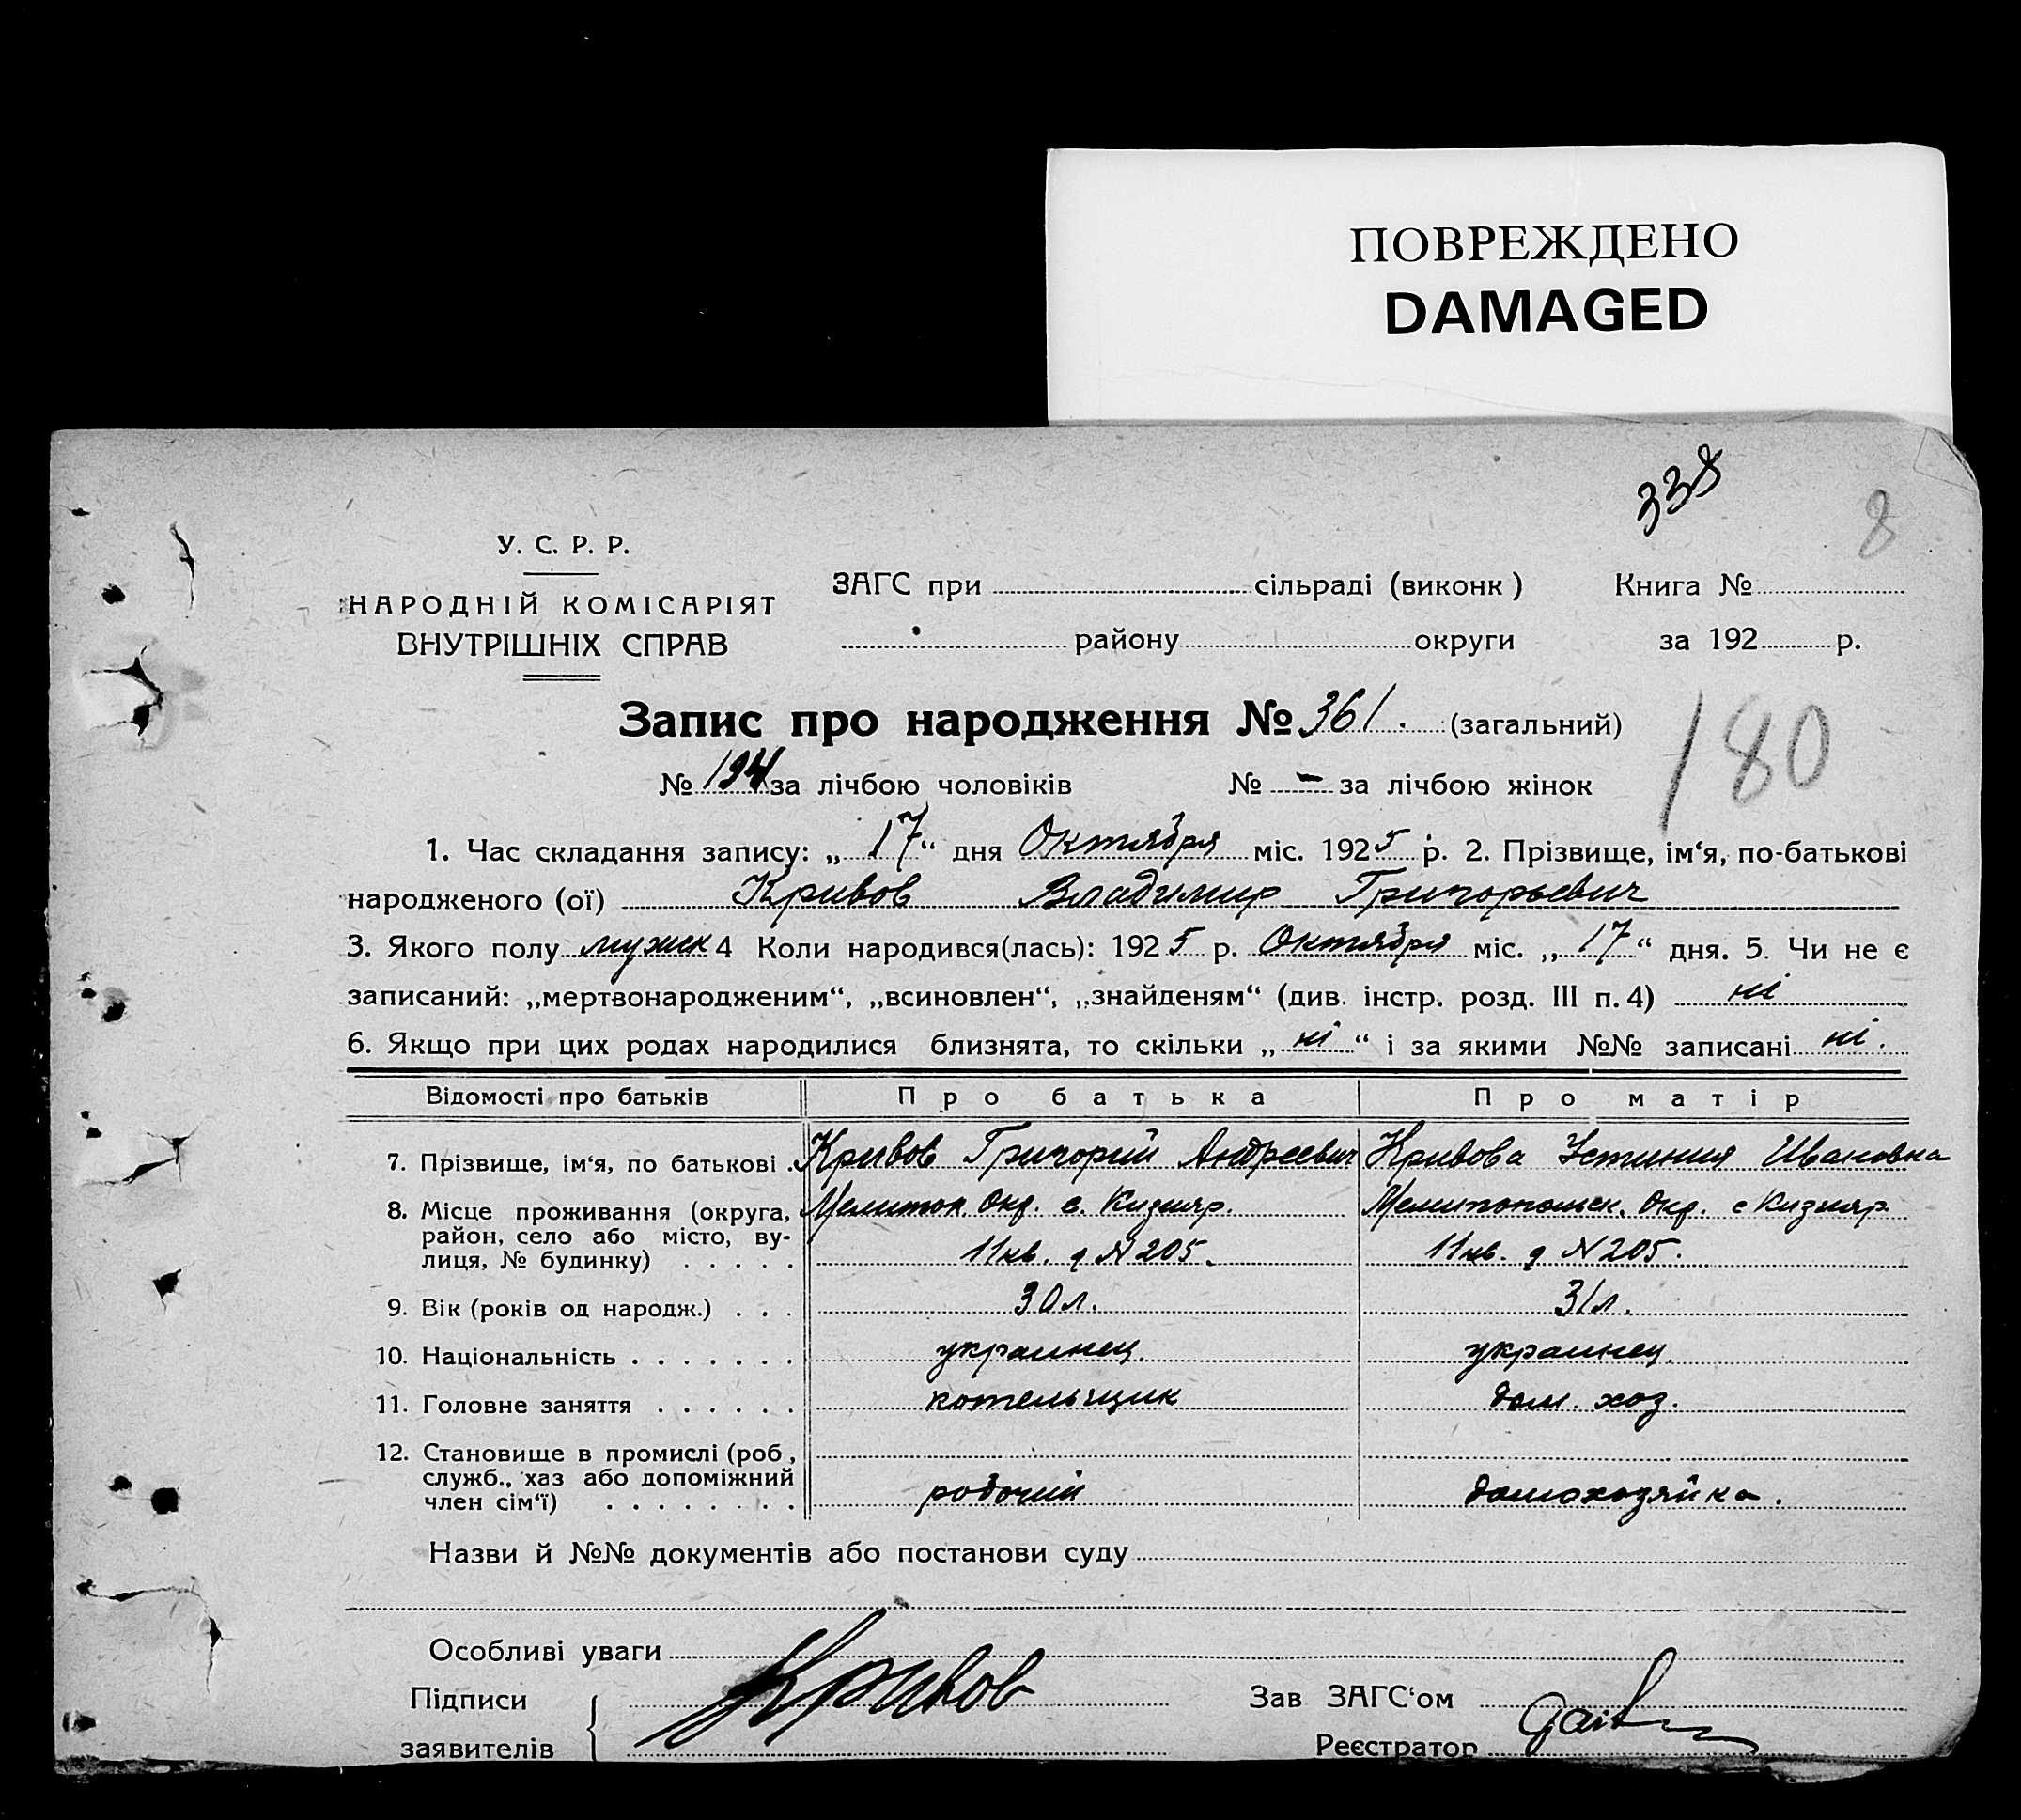 ПОВРЕЖДЕНО
DAMAGED
338
8
У. С. Р. Р.
НАРОДНІЙ КОМІСАРІЯТ
ВНУТРІШНІХ СПРАВ
ЗАГС при сільраді (виконк)
Книга №
району округи
за 192 р.
Запис про народження № 361. (загальний)
180
№ 194 за лічбою чоловіків № – за лічбою жінок
1. Час складання запису: „17“ дня Октября міс. 1925 р. 2. Прізвище, ім‘я, по-батькові
народженого (ої) Кривов Владимир Григорьевич
3. Якого полу мужск 4 Коли народився(лась): 1925 р. Октября міс. „17“ дня. 5. Чи не є
записаний: „мертвонародженим“, „всиновлен“, „знайденям“ (див. інстр. розд. III п. 4) ні
6. Якщо при цих родах народилися близнята, то скільки „ні“ і за якими №№ записані ні.
Відомості про батьків Про батька Про матір
7. Прізвище, ім‘я, по батькові Кривов Григорий Андреевич Кривова Устиния Ивановна
8. Місце проживання (округа, Мелитоп. Окр. с. Кизияр. Мелитопольск. Окр. с Кизияр.
район, село або місто, ву-
лиця, № будинку) 11 кв. д N 205. 11 кв. д N 205.
9. Вік (років од народж.) 30 л. 31 л.
10. Національність украинец. украинец.
11. Головне заняття котельщик дом. хоз.
12. Становище в промислі (роб.,
служб., хаз або допоміжний
член сім‘ї) робочий домохозяйка.
Назви й №№ документів або постанови суду
Особливі уваги
Підписи Кривов Зав ЗАГС‘ом
заявителів Реєстратор